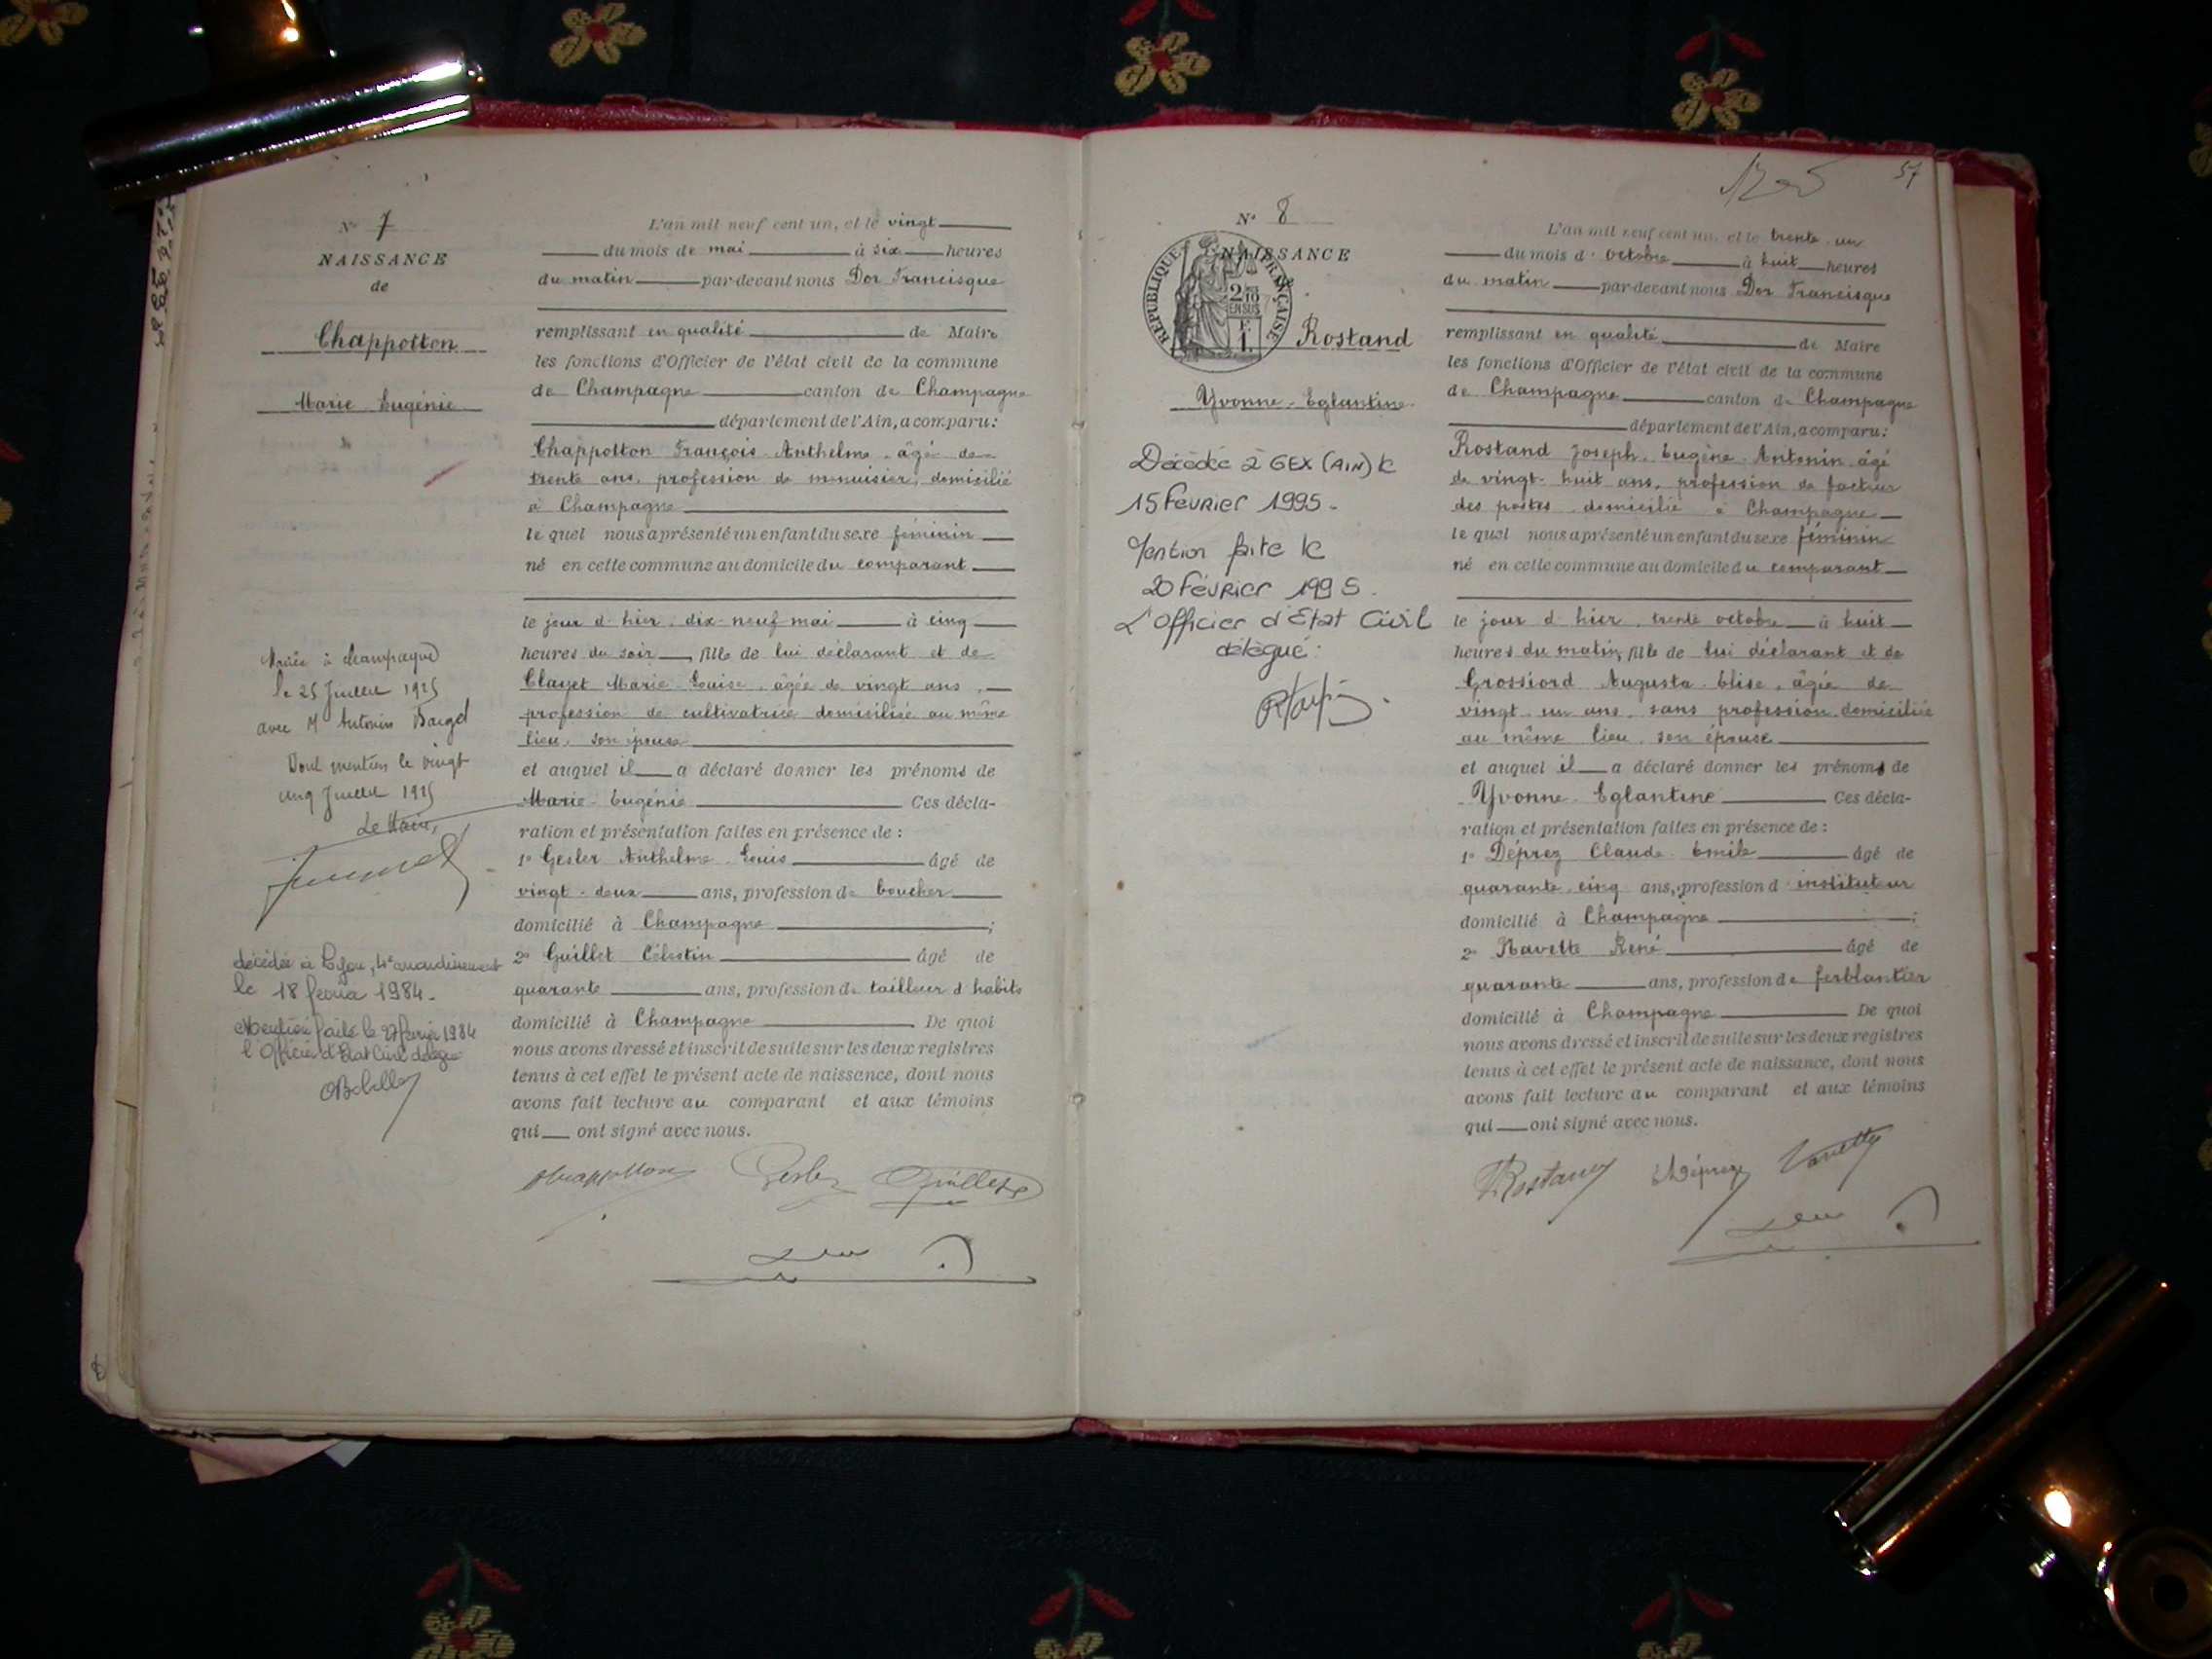 N° 7
NAISSANCE
de
Chappotton
Marie Eugénie
Mariée à Champagne
le 25 Juillet 1925
avec M Antonin
Dont mention le vingt
cinq Juillet 1925
Le Maire,
décédée à Lyon, 4e arrondissement
le 18 février 1984.
Mention faite le 27 février 1984
l'Officier d'Etat Civil délégué
L'an mil neuf cent un, et le vingt
du mois de mai à six heures
du matin par-devant nous Dor Francisque
remplissant en qualité de Maire
les fonctions d'Officier de l'état civil de la commune
de Champagne canton de Champagne
département de l'Ain, a comparu:
Chappotton François Anthelme, âgé de
trente ans, profession de menuisier, domicilié
à Champagne
le quel nous a présenté un enfant du sexe féminin
né en cette commune au domicile du comparant
le jour d'hier, dix-neuf mai à cinq
heures du soir, fille de lui déclarant et de
Clayet Marie Louise, âgée de vingt ans,
profession de cultivatrice domiciliée au même
lieu, son épouse
et auquel il a déclaré donner les prénoms de
Marie-Eugénie Ces décla-
ration et présentation faites en présence de :
1° Gesler Anthelme Louis âgé de
vingt-deux ans, profession de boucher
domicilié à Champagne ;
2° Guillet Célestin âgé de
quarante ans, profession de tailleur d'habits
domicilié à Champagne De quoi
nous avons dressé et inscrit de suite sur les deux registres
tenus à cet effet le présent acte de naissance, dont nous
avons fait lecture au comparant et aux témoins
qui ont signé avec nous.
Chappotton Gesler Guillet
57
N° 8
NAISSANCE
RÉPUBLIQUE FRANÇAISE
2/10
EN SUS
F.
1.
Rostand
Yvonne-Eglantine
Décédée à GEX (AIN) le
15 Février 1995.
Mention faite le
20 Février 1995.
L'Officier d'Etat Civil
délégué:
L'an mil neuf cent un, et le trente-un
du mois d'octobre à huit heures
du matin par-devant nous Dor Francisque
remplissant en qualité de Maire
les fonctions d'Officier de l'état civil de la commune
de Champagne canton de Champagne
département de l'Ain, a comparu:
Rostand Joseph Eugène Antonin âgé
de vingt-huit ans, profession de facteur
des postes domicilié à Champagne
le quel nous a présenté un enfant du sexe féminin
né en cette commune au domicile du comparant
le jour d'hier, trente octobre à huit
heures du matin, fille de lui déclarant et de
Grossiord Augusta Elise, âgée de
vingt-un ans, sans profession domiciliée
au même lieu, son épouse
et auquel il a déclaré donner les prénoms de
Yvonne-Eglantine Ces décla-
ration et présentation faites en présence de :
1° Déprez Claude Emile âgé de
quarante-cinq ans, profession d'instituteur
domicilié à Champagne ;
2° Navette René âgé de
quarante ans, profession de ferblantier
domicilié à Champagne De quoi
nous avons dressé et inscrit de suite sur les deux registres
tenus à cet effet le présent acte de naissance, dont nous
avons fait lecture au comparant et aux témoins
qui ont signé avec nous.
Rostand Déprez Navette